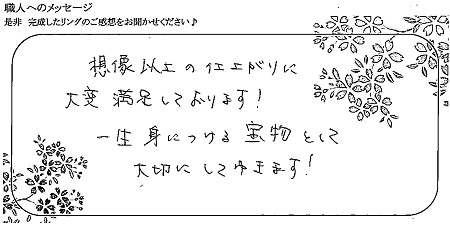 職人へのメッセージ
是非 完成したリングのご感想をお聞かせください♪
想像以上の仕上がりに
大変満足しております!
一生身につける宝物として
大切にしてゆきます!